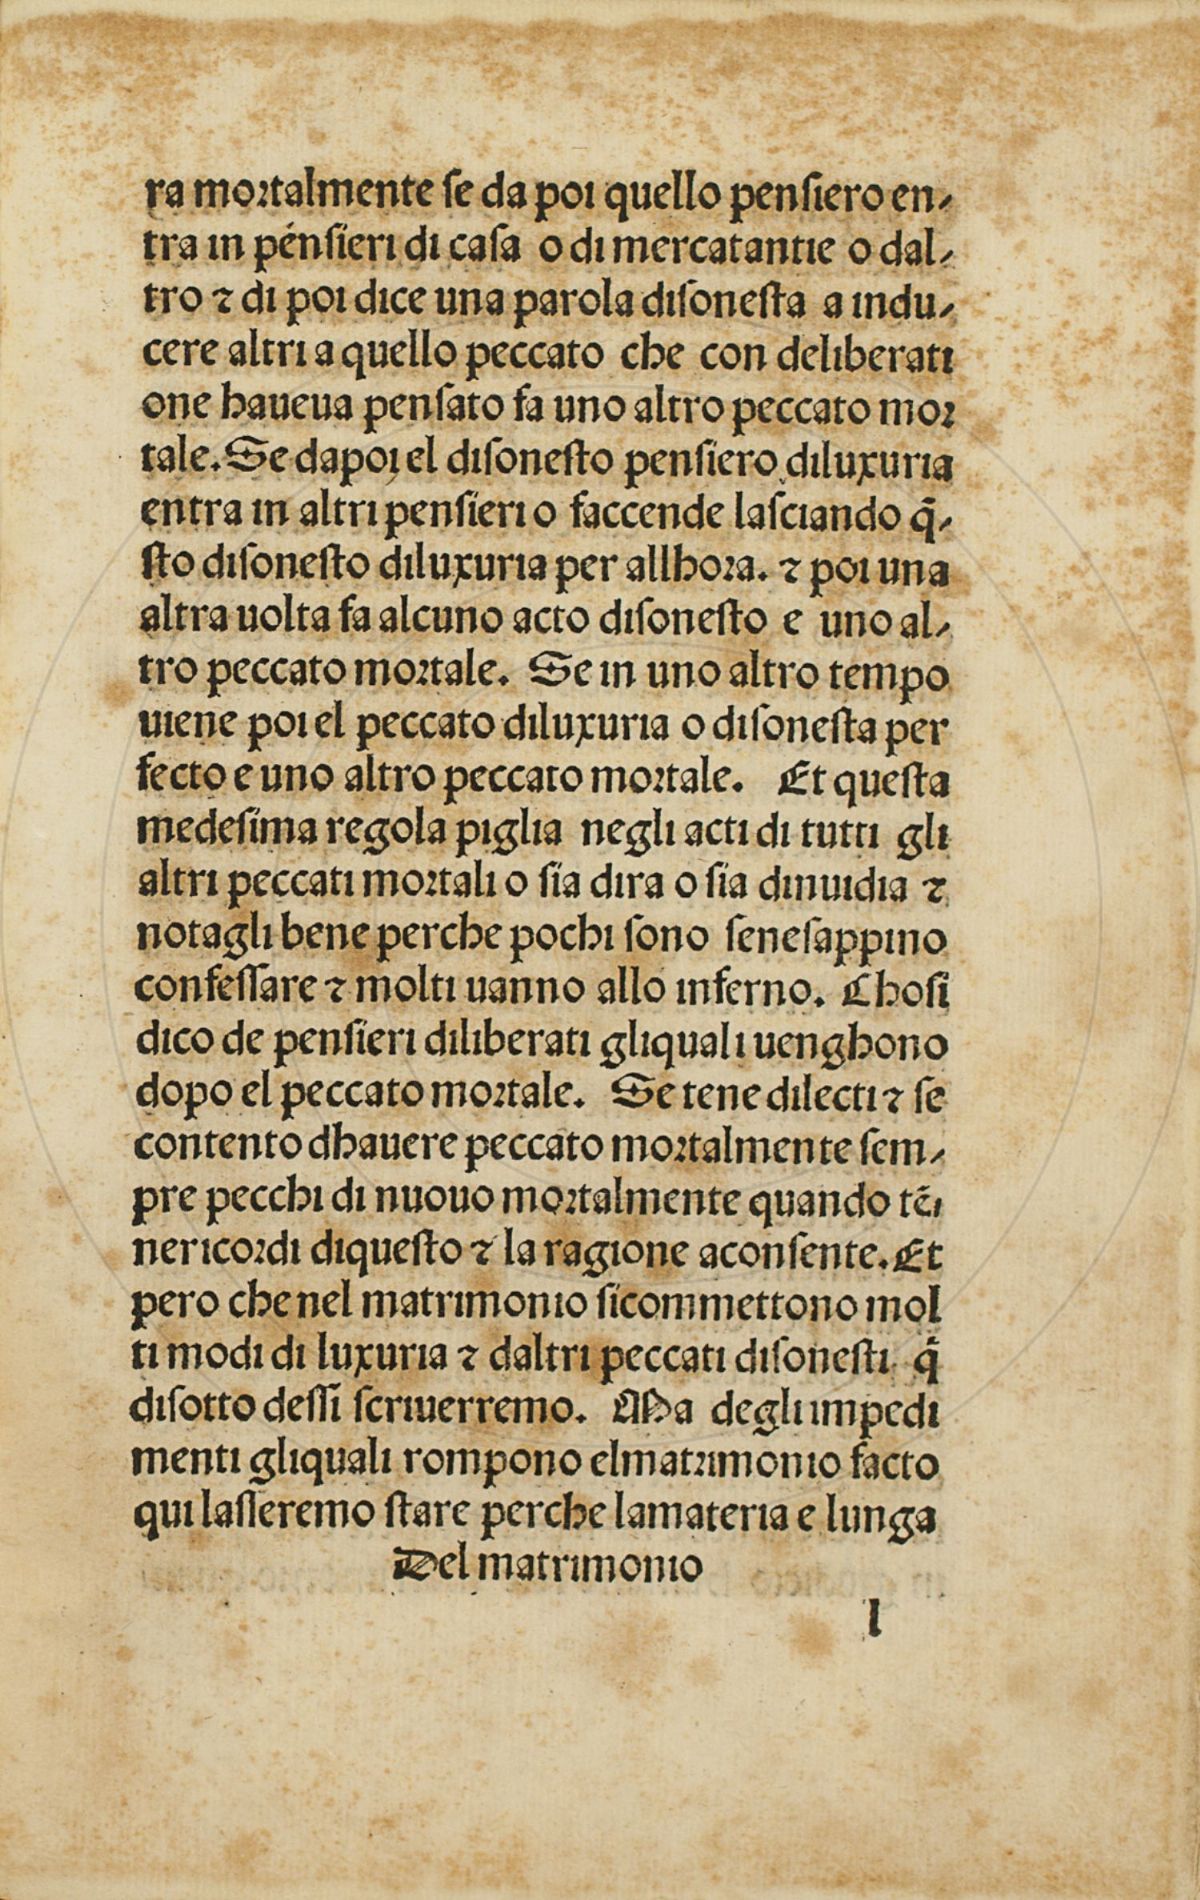 ra mortalmente se da poi quello pensiero en-
tra in pensieri di casa o di mercatantie o dal-
tro ⁊ di poi dice una parola disonesta a indu-
cere altri a quello peccato che con deliberati
one haueua pensato fa uno altro peccato mor
tale. Se dapoi el disonesto pensiero diluxuria
entra in altri pensieri o faccende lasciando q̄-
sto disonesto diluxuria per allhora. ⁊ poi una
altra uolta fa alcuno acto disonesto e uno al-
tro peccato mortale. Se in uno altro tempo
uiene poi el peccato diluxuria o disonesta per
fecto e uno altro peccato mortale. Et questa
medesima regola piglia negli acti di tutti gli
altri peccati mortali o sia dira o sia dinuidia ⁊
notagli bene perche pochi sono senesappino
confessare ⁊ molti uanno allo inferno. Chosi
dico de pensieri diliberati gliquali uenghono
dopo el peccato mortale. Se tene dilecti ⁊ se
contento dhauere peccato mortalmente sem-
pre pecchi di nuouo mortalmente quando tē
nericordi diquesto ⁊ la ragione aconsente. Et
pero che nel matrimonio sicommettono mol
ti modi di luxuria ⁊ daltri peccati disonesti q̄
disotto dessi scriuerremo. Ma degli impedi
menti gliquali rompono elmatrimonio facto
qui lasseremo stare perche lamateria e lunga
Del matrimonio
l